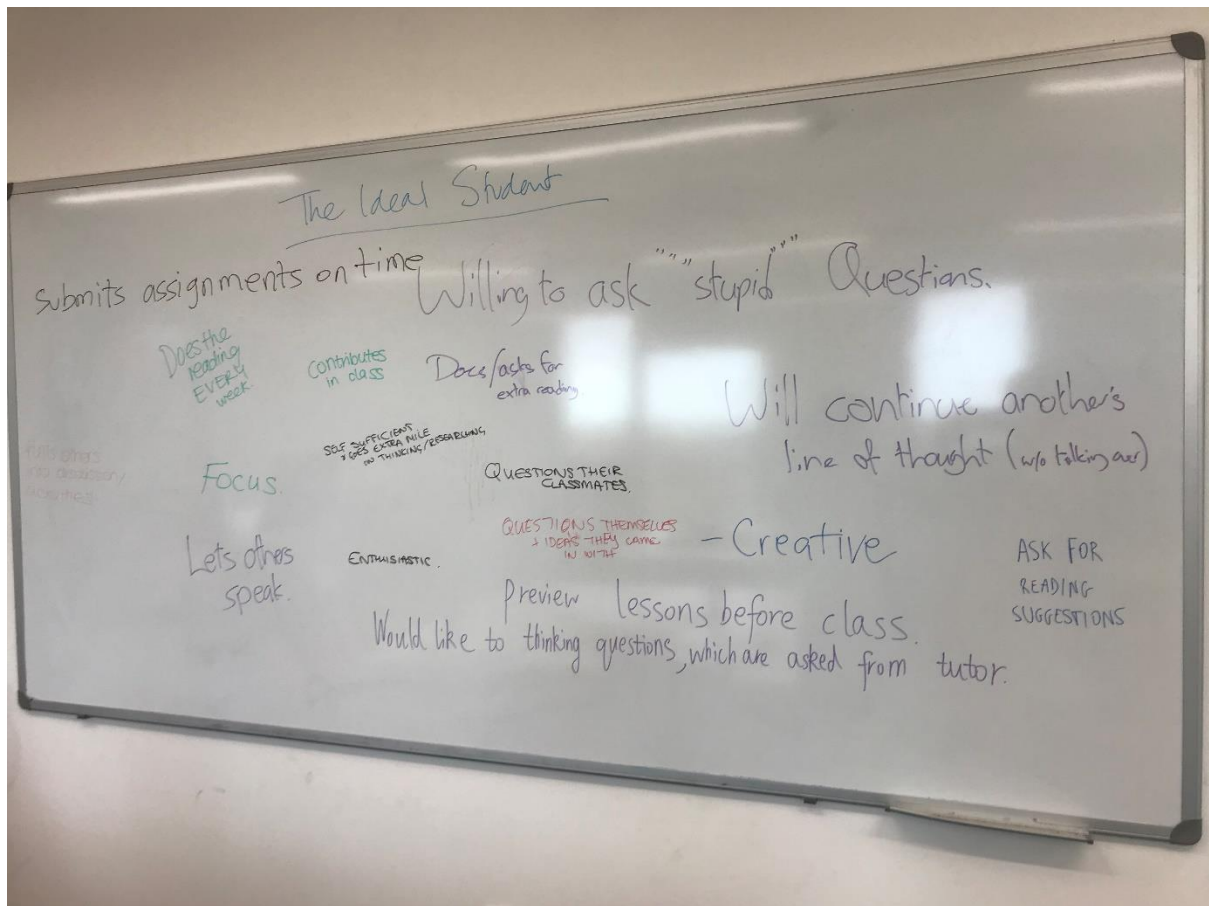 The Ideal Student
Submits assignments on time
Willing to ask """stupid""" Questions.
Does the
reading
EVERY
week.
Contributes
in class
Does/asks for
extra reading
Will continue another's
line of thought (w/o talking over)
SELF SUFFICIENT
& GOES EXTRA MILE
ON THINKING/RESEARCHING
Focus.
QUESTIONS THEIR
CLASSMATES.
QUESTIONS THEMSELVES
+ IDEAS THEY CAME
IN WITH
- Creative
ASK FOR
READING
SUGGESTIONS
Lets others
speak.
ENTHUSIASTIC.
Preview lessons before class.
Would like to thinking questions, which are asked from tutor.